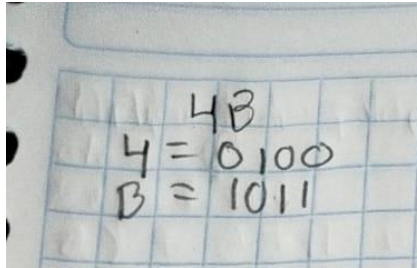 4B
4 = 0100
B = 1011